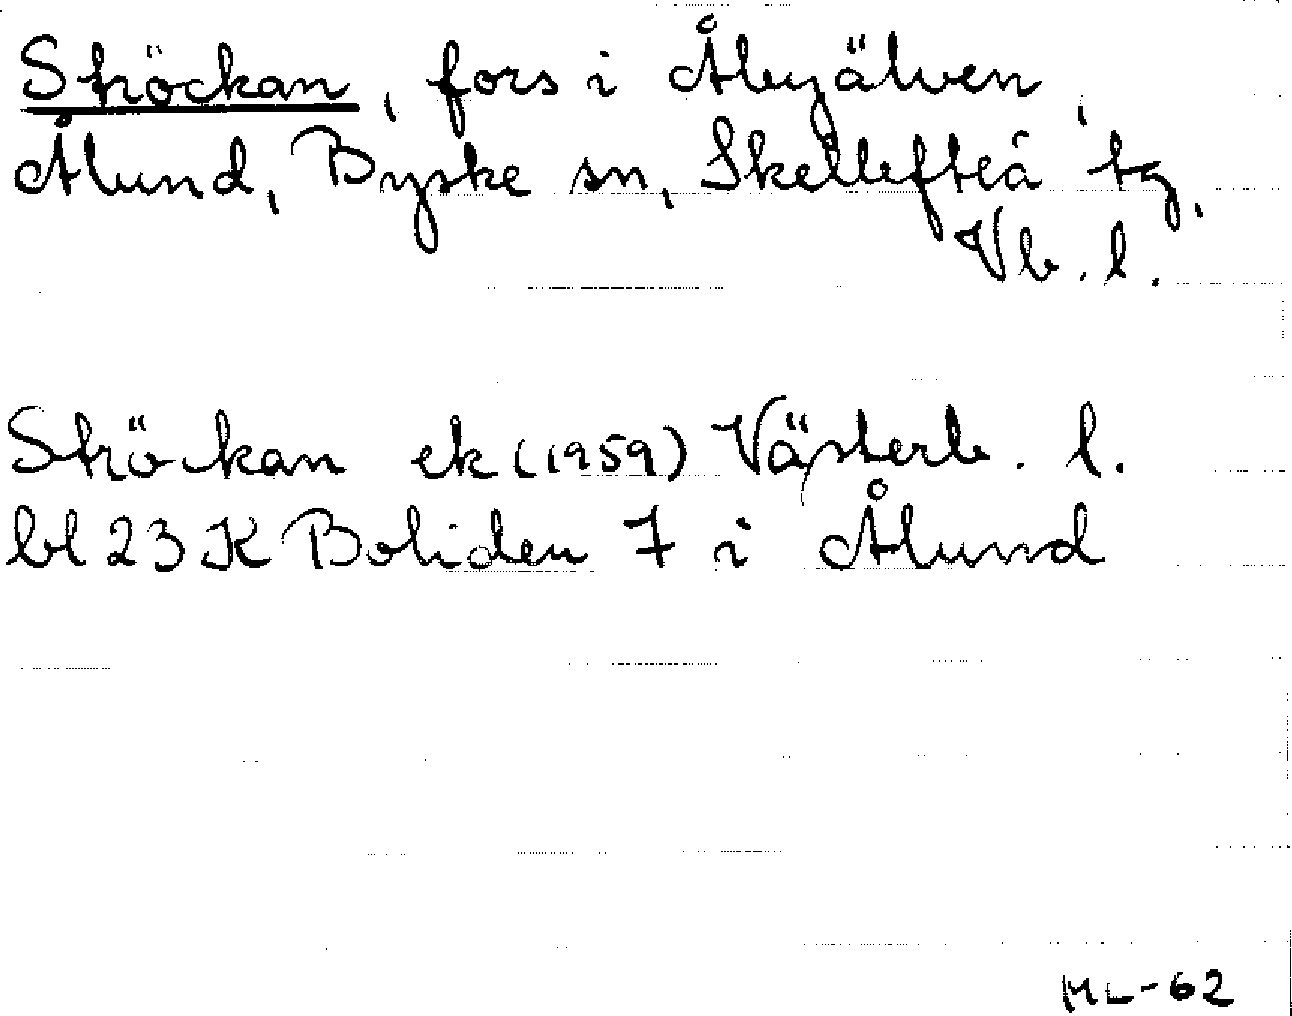 Ströckan, fors i Åbyälven,
Ålund, Byske sn, Skellefteå tg,
Vb. l.
Ströckan ek (1959) Västerb. l.
bl 23 K Boliden 7 i Ålund
ML-62